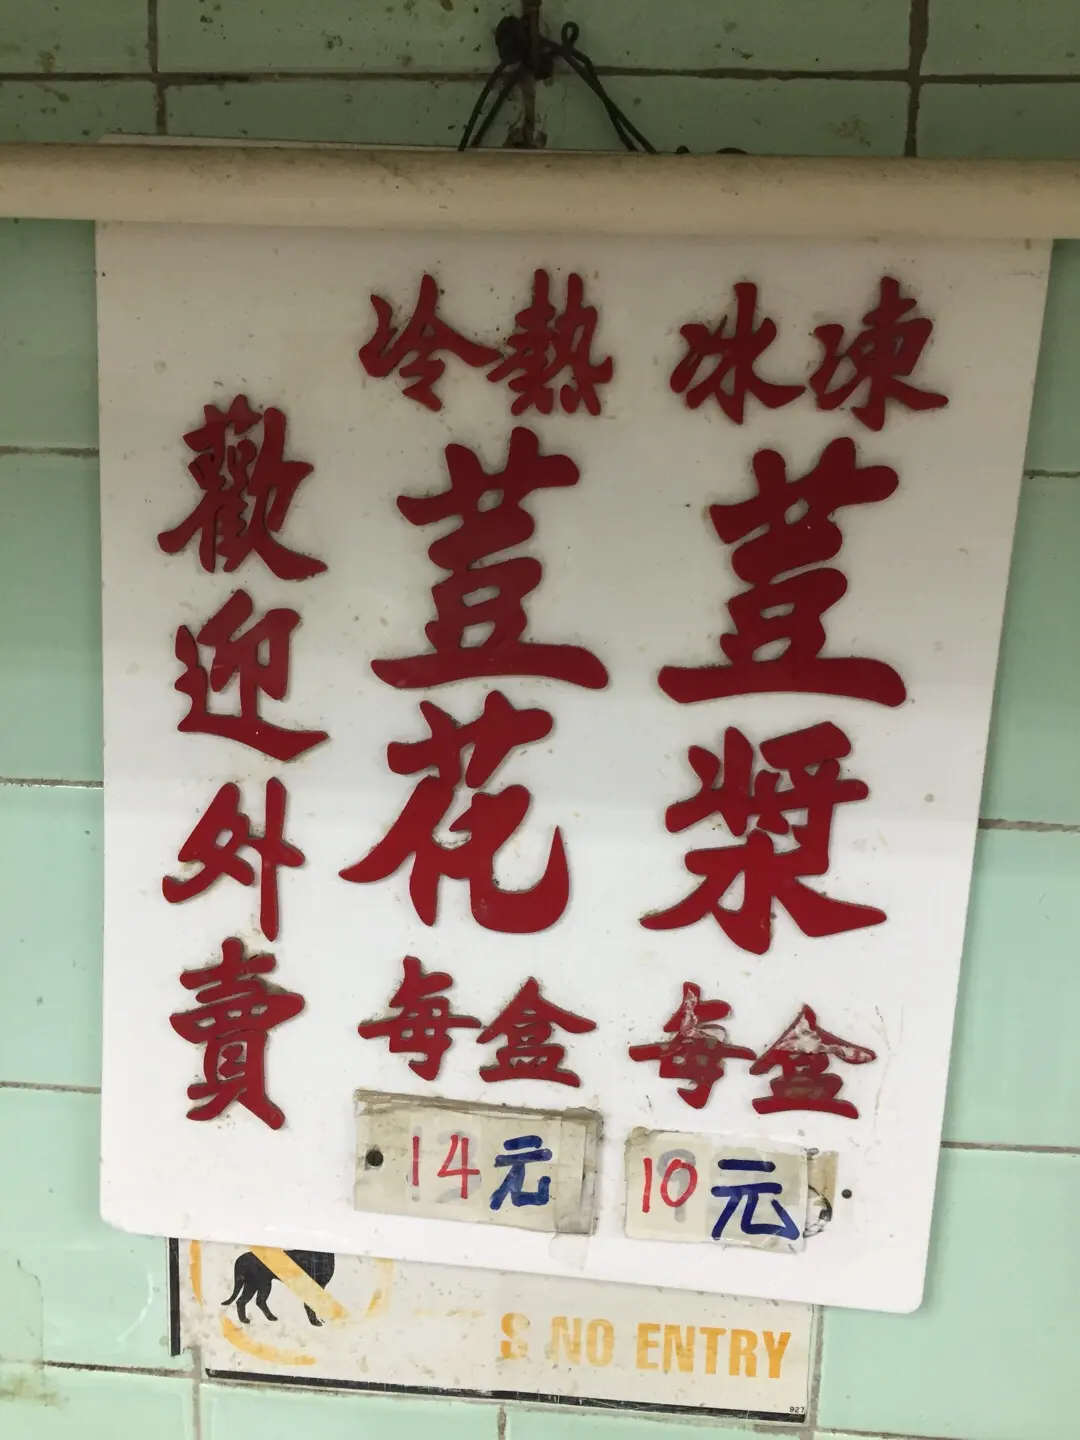 冰凍
荳漿
每盒
10元
冷熱
荳花
每盒
14元
歡迎外賣
S NO ENTRY
927